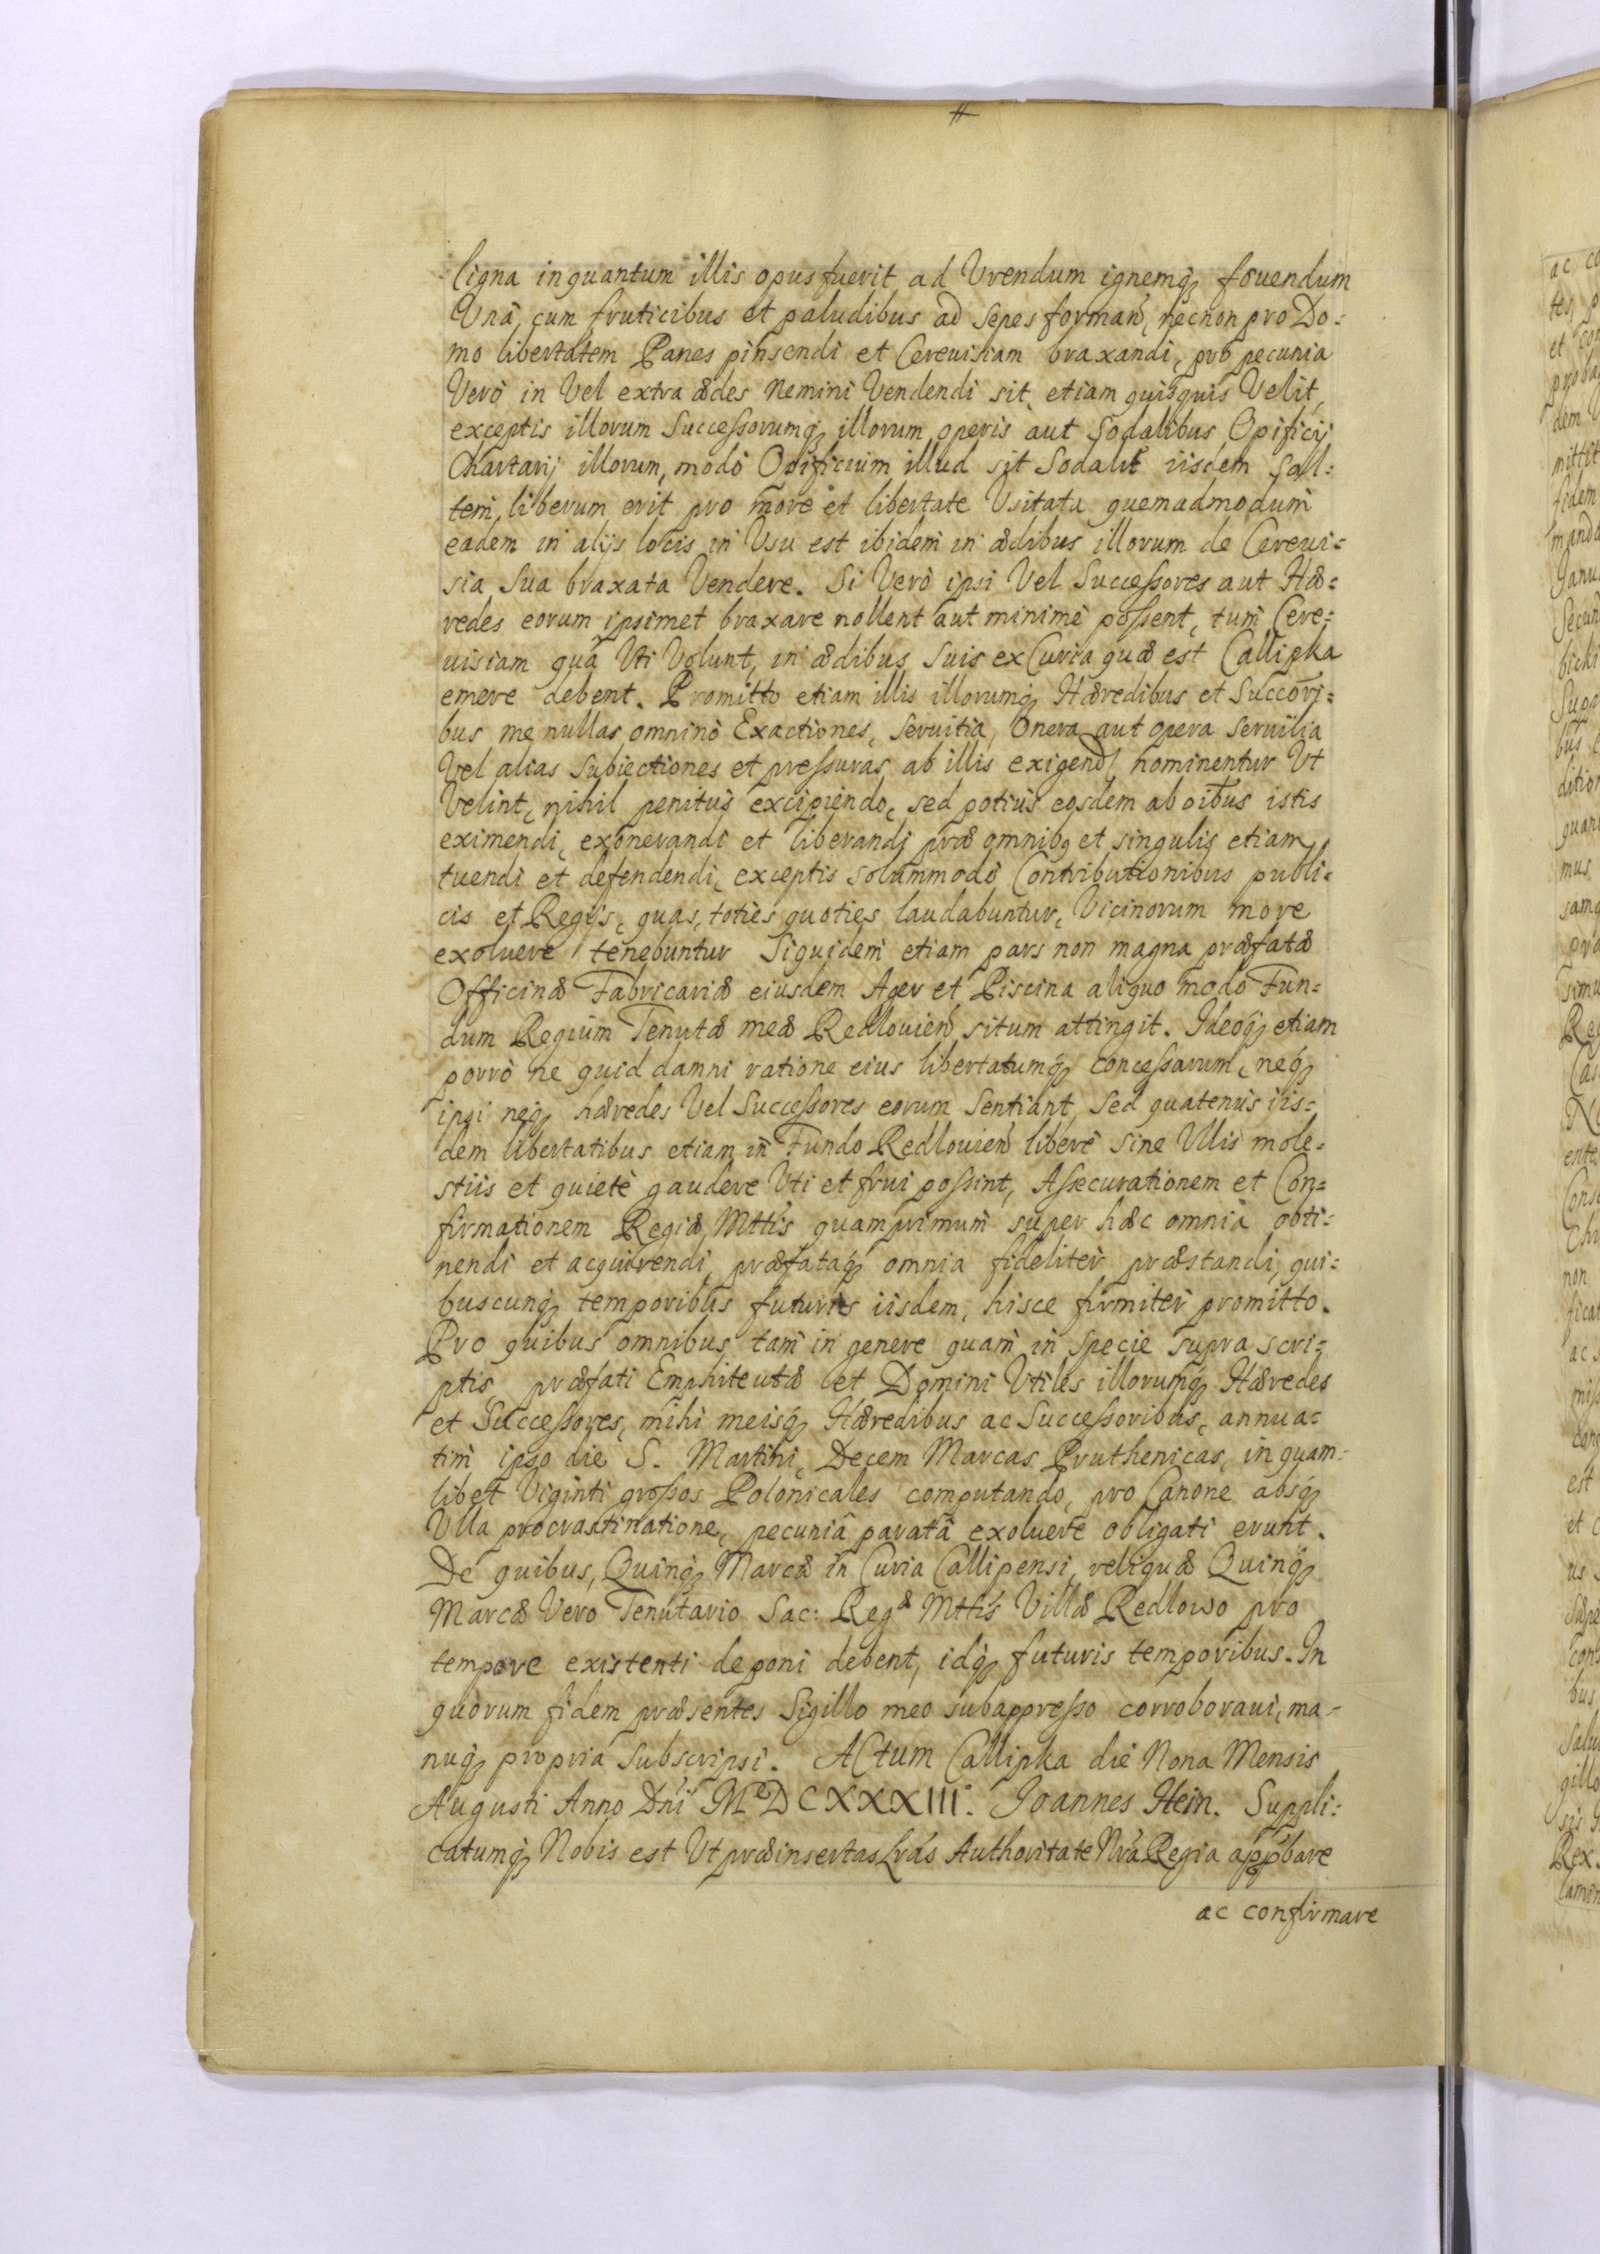 ligna inquantum illis opus fuerit ad Vrendum ignemq; fouendum
Vnâ cum fruticibus et paludibus ad sepes formand, necnon pro Do=
mo libertatem Panes pinsendi et Cereuisiam braxandi, pro pecunia
Verò in Vel extra ædes nemini Vendendi sit, etiam quisquis Velit,
exceptis illorum Successorumq; illorum operis aut Sodalibus Opificij
Chartarij illorum, modò Opificium illud sit Sodalit iisdem Sal=
tem, liberum erit pro more et libertate Vsitata quemadmodum
eadem in alijs locis in Vsu est ibidem in ædibus illorum de Cereui=
sia Sua braxata Vendere. Si Verò ipsi Vel Successores aut Hæ=
redes eorum ipsimet braxare nollent aut minimè possent, tum Cere=
uisiam quã Vti Volunt, in ædibus Suis ex Curia quæ est Callipka
emere debent. Promitto etiam illis illorumq; Hæredibus et Succori=
bus me nullas omninò Exactiones, seruitia, Onera aut opera seruilia
Vel alias Subiectiones et pressuras ab illis exigend nominentur Vt
Velint, nihil penitus excipiendo, sed potius eosdem ab oibus istis
eximendi, exonerandi et liberandi præ omnibq et singulis etiam
tuendi et defendendi, exceptis solummodò Contributionibus publi=
cis et Regijs, quas, toties quoties laudabuntur, Vicinorum more
exoluere tenebuntur Siquidem etiam pars non magna præfatæ
Officinæ Fabricariæ eiusdem Ager et Piscina aliquo modo Fun=
dum Regium Tenutæ meæ Redlouien situm attingit. Ideoq; etiam
porrò ne quid damni ratione eius libertatumq; concessarum, neq;
ipsi neq; hæredes Vel Successores eorum Sentiant, Sed quatenus iis=
dem libertatibus etiam in Fundo Redlouien liberè sine Vllis mole=
stiis et quietè gaudere Vti et frui possint, Assecurationem et Con=
firmationem Regiæ Mttis quamprimum super hæc omnia obti=
nendi et acquirendi præfataq; omnia fideliter præstandi, qui=
buscunq; temporibus futuris iisdem, hisce firmiter promitto.
Pro quibus omnibus tam in genere quam in specie supra scri=
ptis, præfati Emphiteutæ et Domini Vtiles illorumq; Hæredes
et Successores, mihi meisq; Hæredibus ac Successoribus, annua=
tim ipso die S. Martini, Decem Marcas Pruthenicas, in quam=
libet Viginti grossos Polonicales computando, pro Canone absq;
Vlla procrastinatione, pecuniâ paratâ exoluere obligati erunt.
De quibus, Quinq; Marcæ in Curia Callipensi, reliquæ Quinq;
Marcæ Vero Tenutario Sac: Regæ Mttis Villæ Redlowo pro
tempore existenti deponi debent, idq; futuris temporibus. In
quorum fidem præsentes Sigillo meo subappresso corroboraui, ma=
nuq; propria subscripsi. ACtum Callipka die Nona Mensis
Augusti Anno Dni MDCXXXIII. Joannes Hein. Suppli=
catumq; Nobis est Vt præinsertas Lras Authoritate Nra Regia appbare
ac confirmare